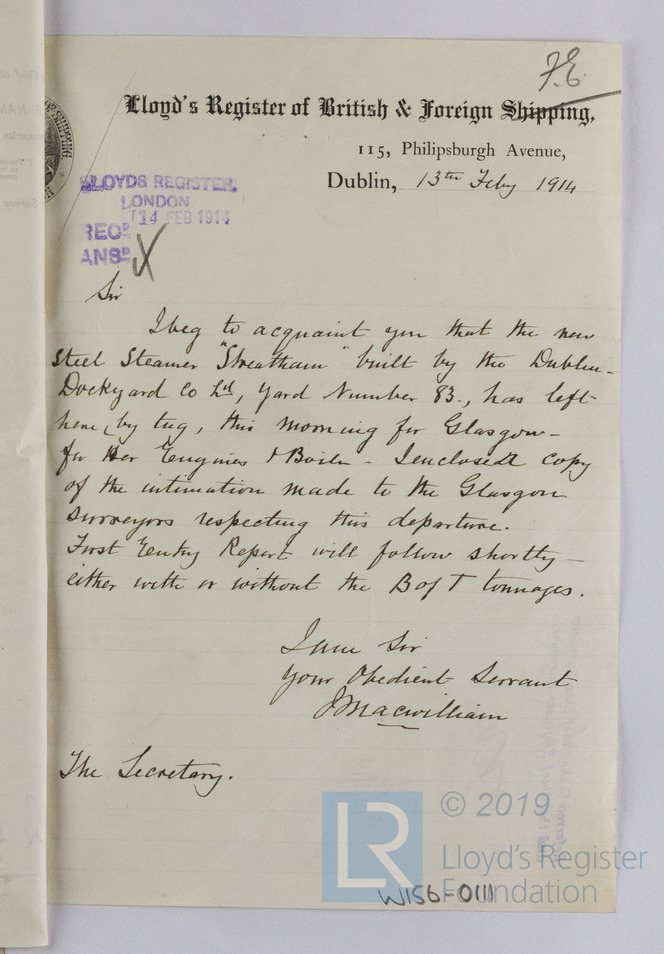 F.E.
Lloyd's Register of British & Foreign Shipping,
115, Philipsburgh Avenue,
Dublin, 13th Feby 1914
LLOYDS REGISTER,
LONDON
14 FEB 1914
REC^D
ANS^D
Sir
I beg to acquaint you that the new
Steel Steamer "Streatham" built by the Dublin-
Dockyard Co Ltd, Yard Number 83., has left
here, by tug, this morning for Glasgow-
for Her Engines & Boiler - I enclosed copy
of the intimation made to the Glasgow
Surveyors respecting this departure.
First Entry Report will follow shortly-
either with or without the B of T tonnages.
I am Sir
Your Obedient Servant
J Macwilliam
The Secretary.
© 2019
LR
Lloyd's Register
Foundation
W156-0111